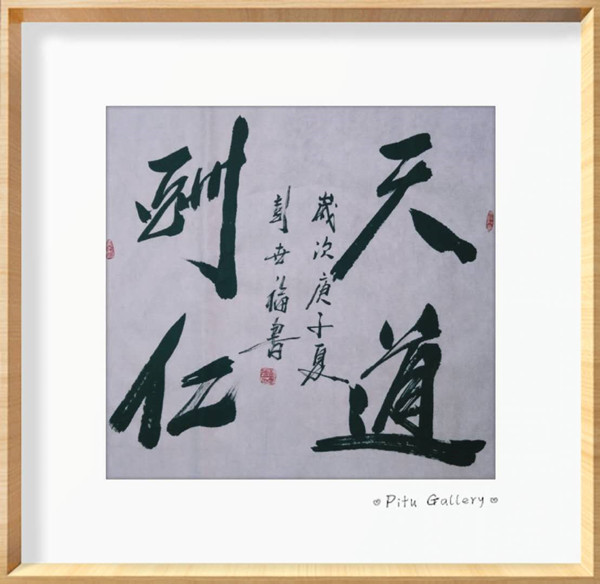 天道
酬仁
歲次庚子夏
彭世書
Pitu Gallery